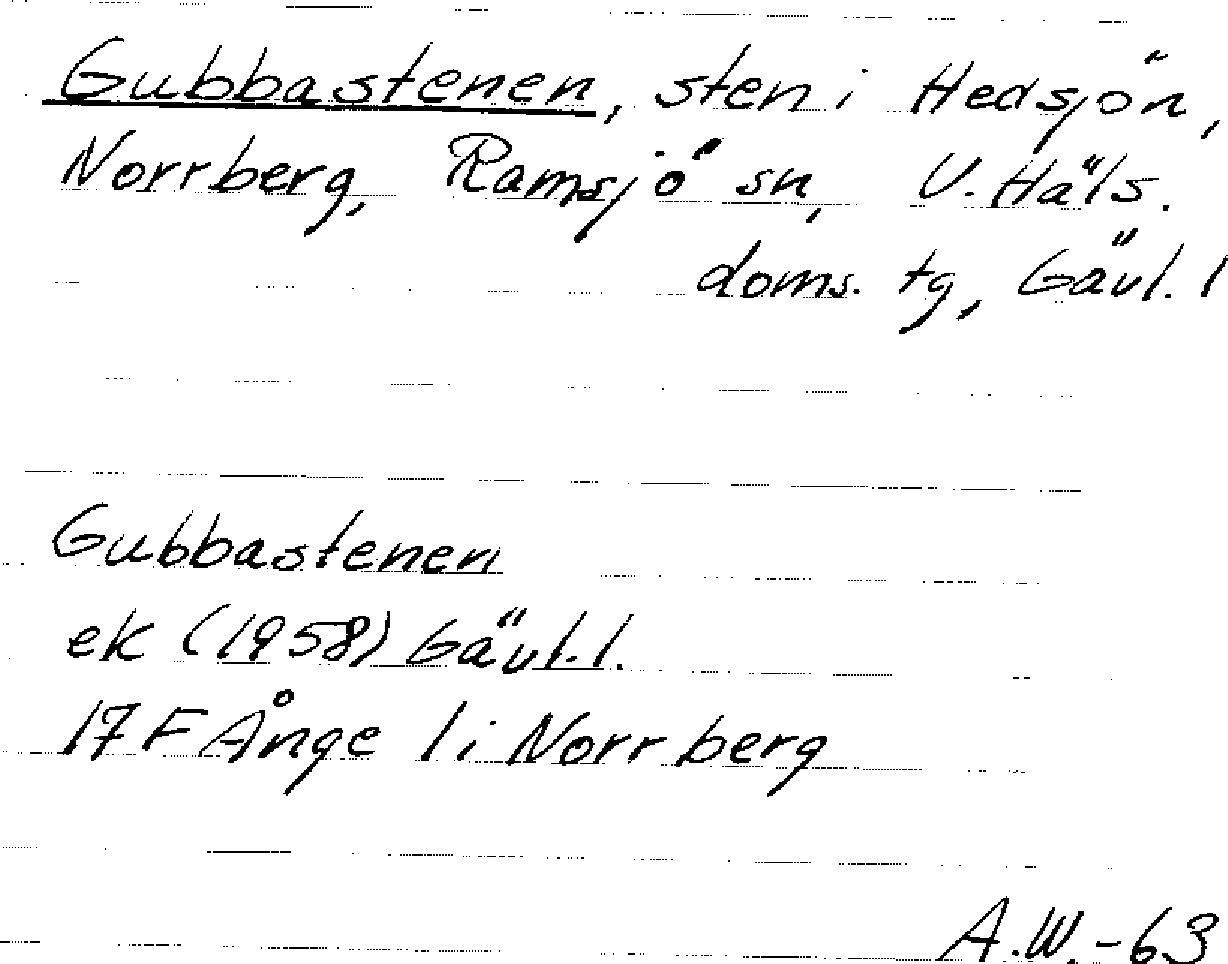 Gubbastenen, sten i Hedsjön,
Norrberg, Ramsjö sn, V. Häls.
doms. tg, Gävl. l
Gubbastenen
ek (1958) Gävl. l.
17 F Ånge 1 i Norrberg
A.W. -63